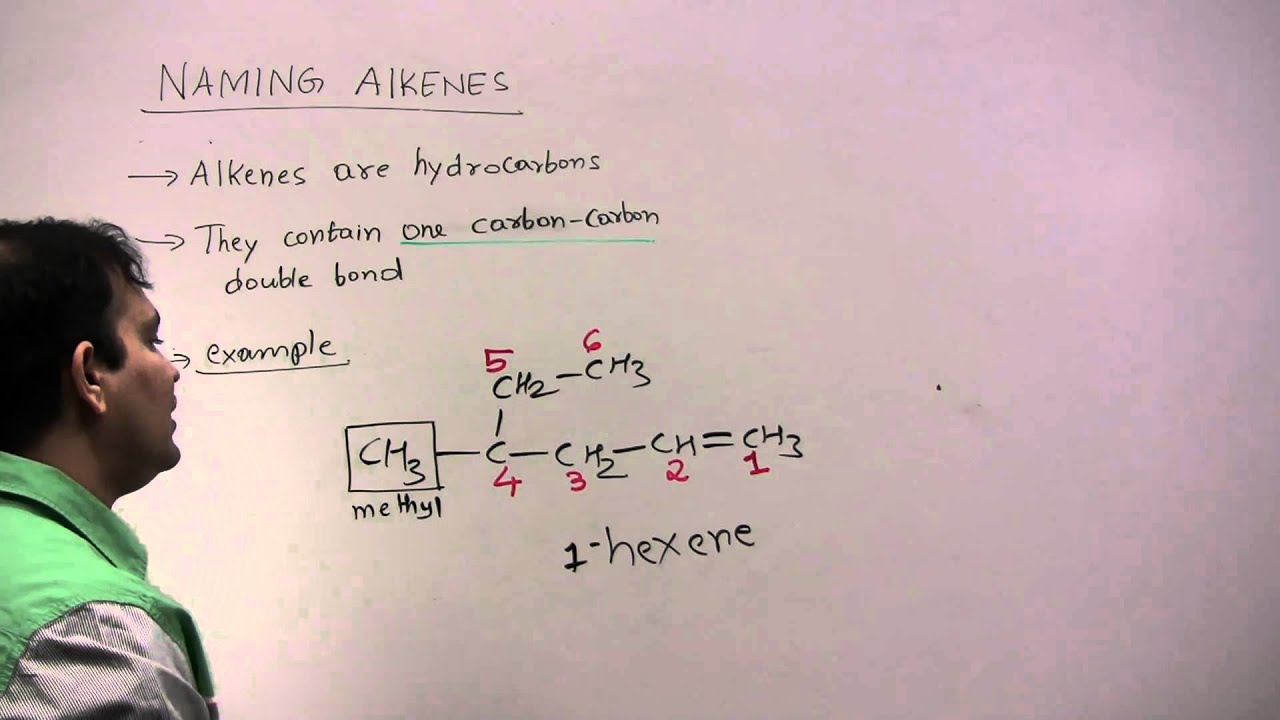 NAMING AlKENES
→ Alkenes are hydrocarbons
→ They contain one carbon-carbon
double bond
→ example
5 6
CH2-CH3
CH3-C-CH2-CH=CH3
4 3 2 1
methyl
1-hexene